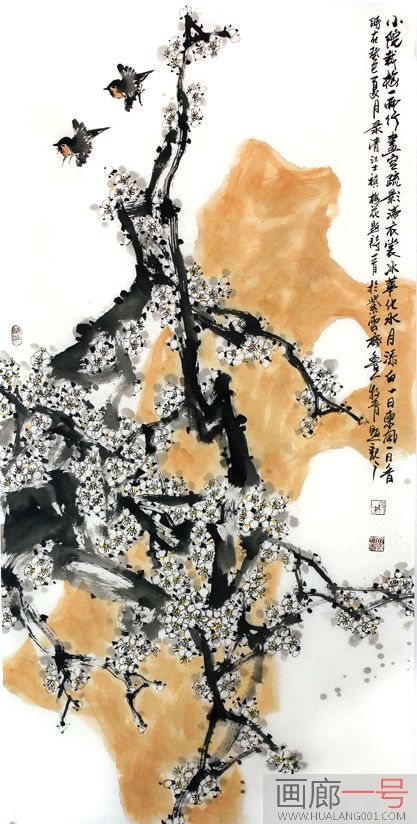 小院栽梅一兩行畫空疏影滿衣裳冰華化水月添白一日東風一日香
時在癸巳夏月录清汪士慎梅花詩一首於紫雲
画廊一号
WWW.HUALANG001.COM